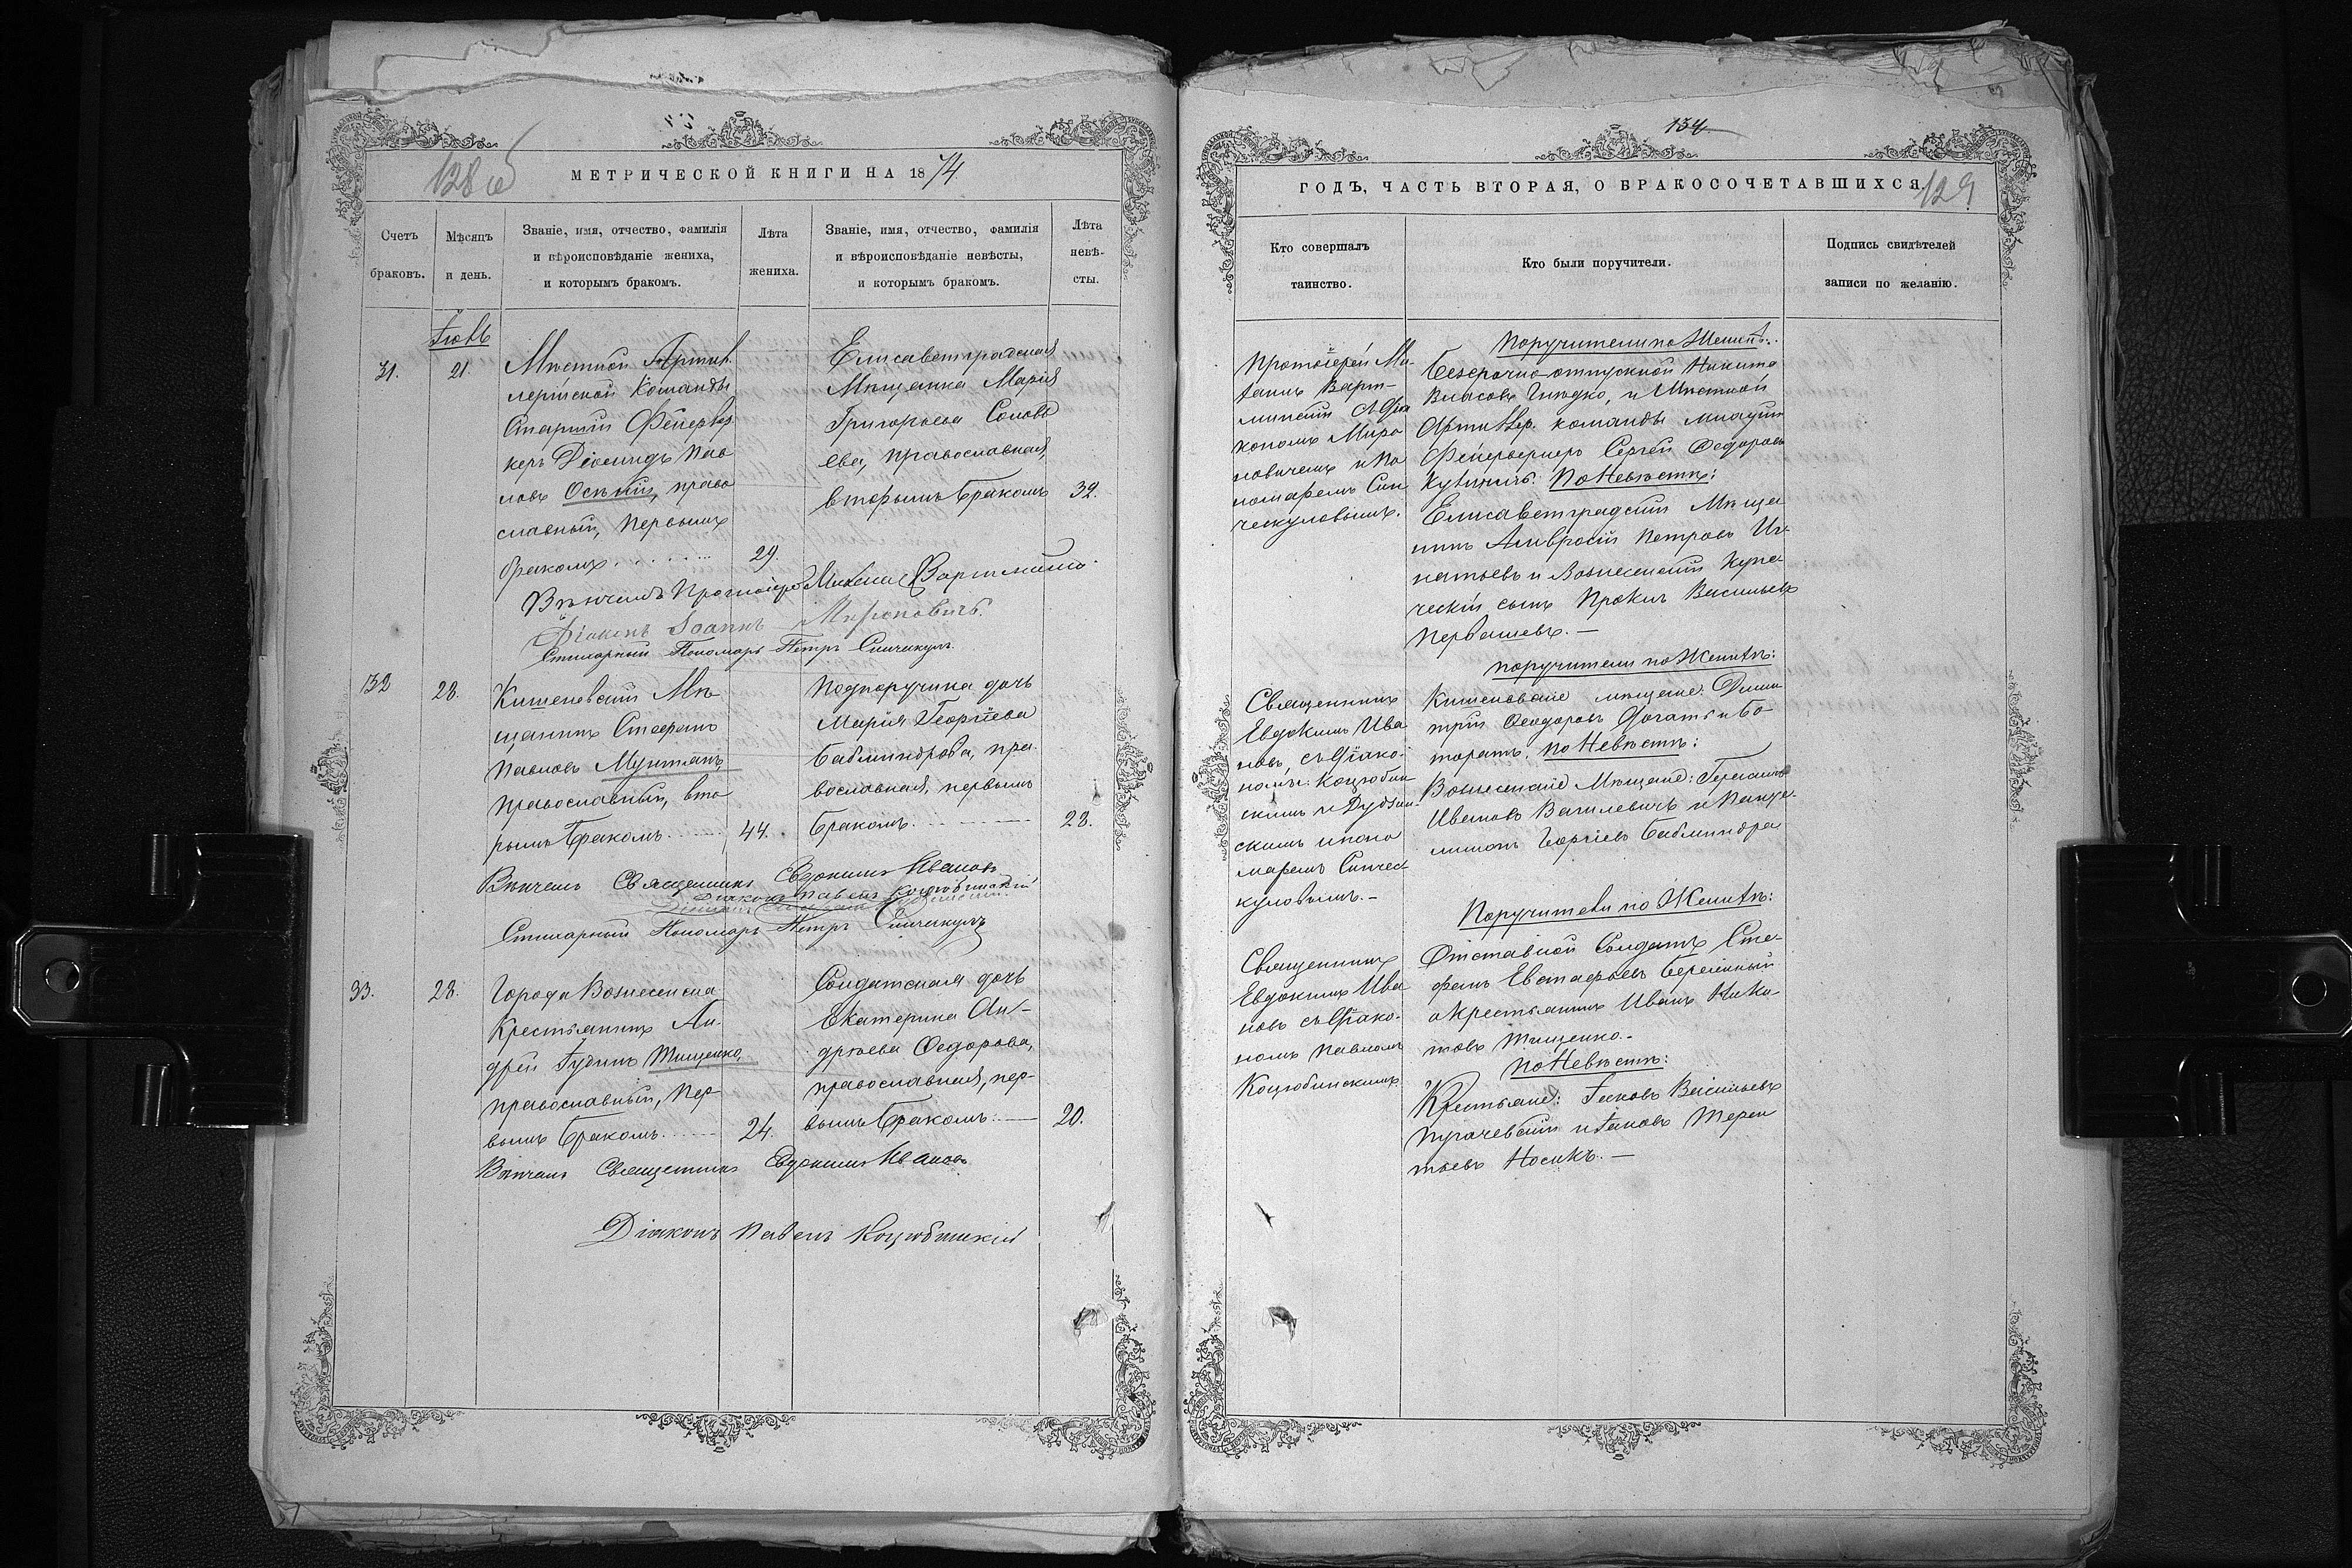 128 об
МЕТРИЧЕСКОЙ КНИГИ НА 1874
Счетъ браковъ.
Мѣсяцъ и день.
Званіе, имя, отчество, фамилія
и вѣроисповѣданіе жениха,
и которымъ бракомъ.
Лѣта жениха.
Званіе, имя, отчество, фамилія
и вѣроисповѣданіе невѣсты,
и которымъ бракомъ.
Лѣта невѣ-
сты.
Іюль
31.
21.
Мѣстной Артил
лерійской Команды
Старшій Фейервер
керъ Діомидъ Пав
ловъ право
славный, первымъ
бракомъ
29
Елисаветградская
Мѣщанка Марія
Григорьева Соловь
ева, православная,
вторымъ бракомъ
32.
Вѣнчалъ Протоіерей Михаилъ
Діаконъ Іоаннъ Мироновичъ.
Стихарный Пономарь Петръ Синчикулъ
132
28.
Кишеневскій Мѣ-
щанинъ Стефанъ
Павловъ Мунтянъ,
православный, вто
рымъ бракомъ
44.
Подпоручика дочь
Марія Георгіева
пра
вославная, первымъ
бракомъ
28.
Вѣнчалъ Священникъ Евдокимъ Ивановъ
Діаконъ Павелъ Коцюбинскій
Стихарный Пономарь Петръ Синчикулъ
33.
28.
Города Вознесенска
Крестьянинъ Ан-
дрей Тищенко,
православный, пер
вымъ бракомъ
24.
Солдатская дочь
Екатерина Ан-
дреева Федорова,
православная, пер-
вымъ бракомъ
20.
Вѣнчалъ Священникъ Евдокимъ Ивановъ
Діаконъ Павелъ Коцюбинскій
134
129
ГОДЪ, ЧАСТЬ ВТОРАЯ, О БРАКОСОЧЕТАВШИХСЯ.
Кто совершалъ
таинство.
Кто были поручители.
Подпись свидѣтелей
записи по желанію.
Протоіерей Ми-
хаилъ Варт-
съ Діа
кономъ Миро
новичемъ и По
номаремъ Син
чикуловымъ.
Поручители по Женихѣ:
Безсрочно-отпускной Никита
Власовъ и Мѣстной
Артиллер. команды младшій
Фейерверкеръ Сергѣй Федоровъ
По Невѣстѣ:
Елисаветградскій Мѣща
нинъ Амвросій Петровъ Иг-
натьевъ и Вознесенскій Купе-
ческій сынъ Васильевъ
Первашевъ. —
Священникъ
Евдокимъ Ива
новъ съ Діако-
нами: Коцюбин
скимъ и
скимъ и поно
маремъ Синчи
куловымъ. —
Поручители по Женихѣ:
Кишеневскіе мѣщане: Дими
трій Феодоровъ и Бо-
По Невѣстѣ:
Вознесенскіе Мѣщане:
Ивановъ Василевичъ и Панте-
лимонъ Георгіевъ
Священникъ
Евдокимъ Ива
новъ съ Діако-
номъ Павломъ
Коцюбинскимъ
Поручители по Женихѣ:
Отставной Солдатъ Сте-
фанъ Евстафьевъ
и Крестьянинъ Иванъ
Тищенко. —
По Невѣстѣ:
Крестьяне: Іаковъ Васильевъ
и Іаковъ Терен
тьевъ Носикъ. —